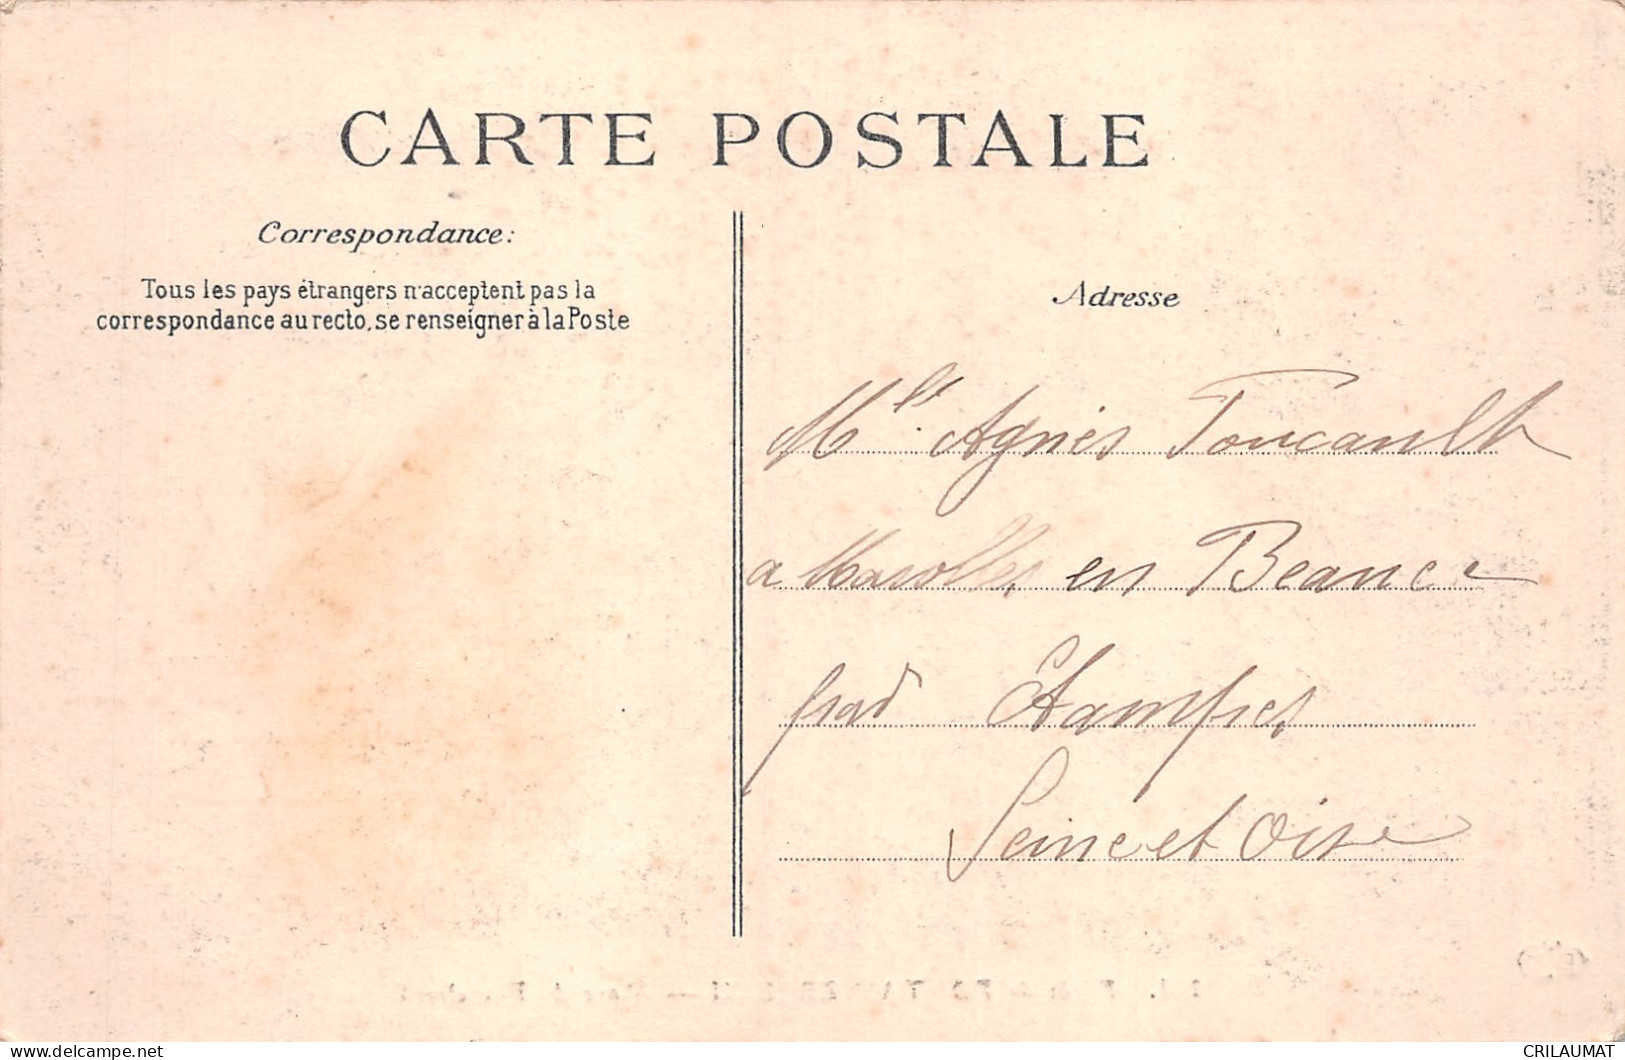 CARTE POSTALE
Correspondance:
Tous les pays étrangers n'acceptent pas la
correspondance au recto, se renseigner à la Poste
Adresse
Mlle Agnès Foucault
a Marolles en Beauce
par Etampes
Seine et Oise
delcampe.net
CRILAUMAT